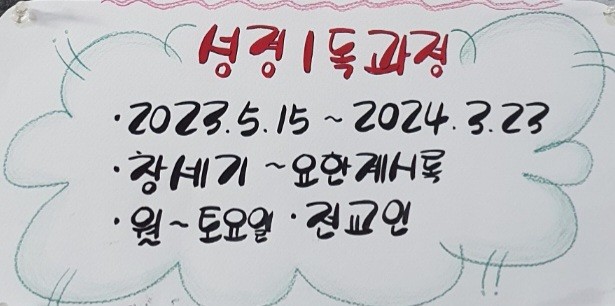 성경 1독과정
·2023.5.15 ~ 2024.3.23
·창세기 ~ 요한계시록
·월 ~ 토요일 ·전교인